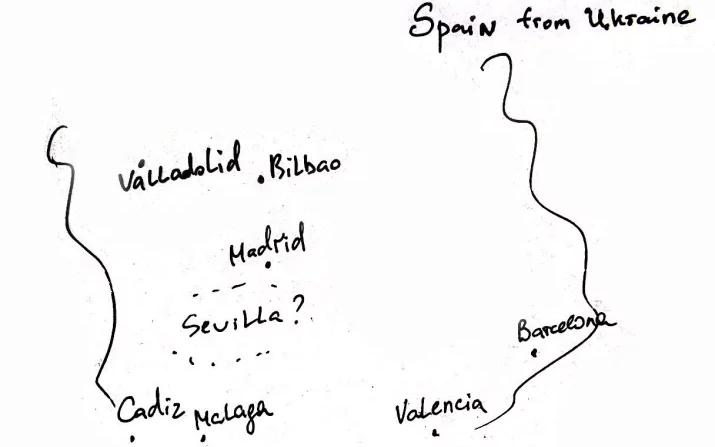 Spain from Ukraine
Valladolid
Bilbao
Madrid
Sevilla?
Barcelona
Cadiz
Malaga
Valencia